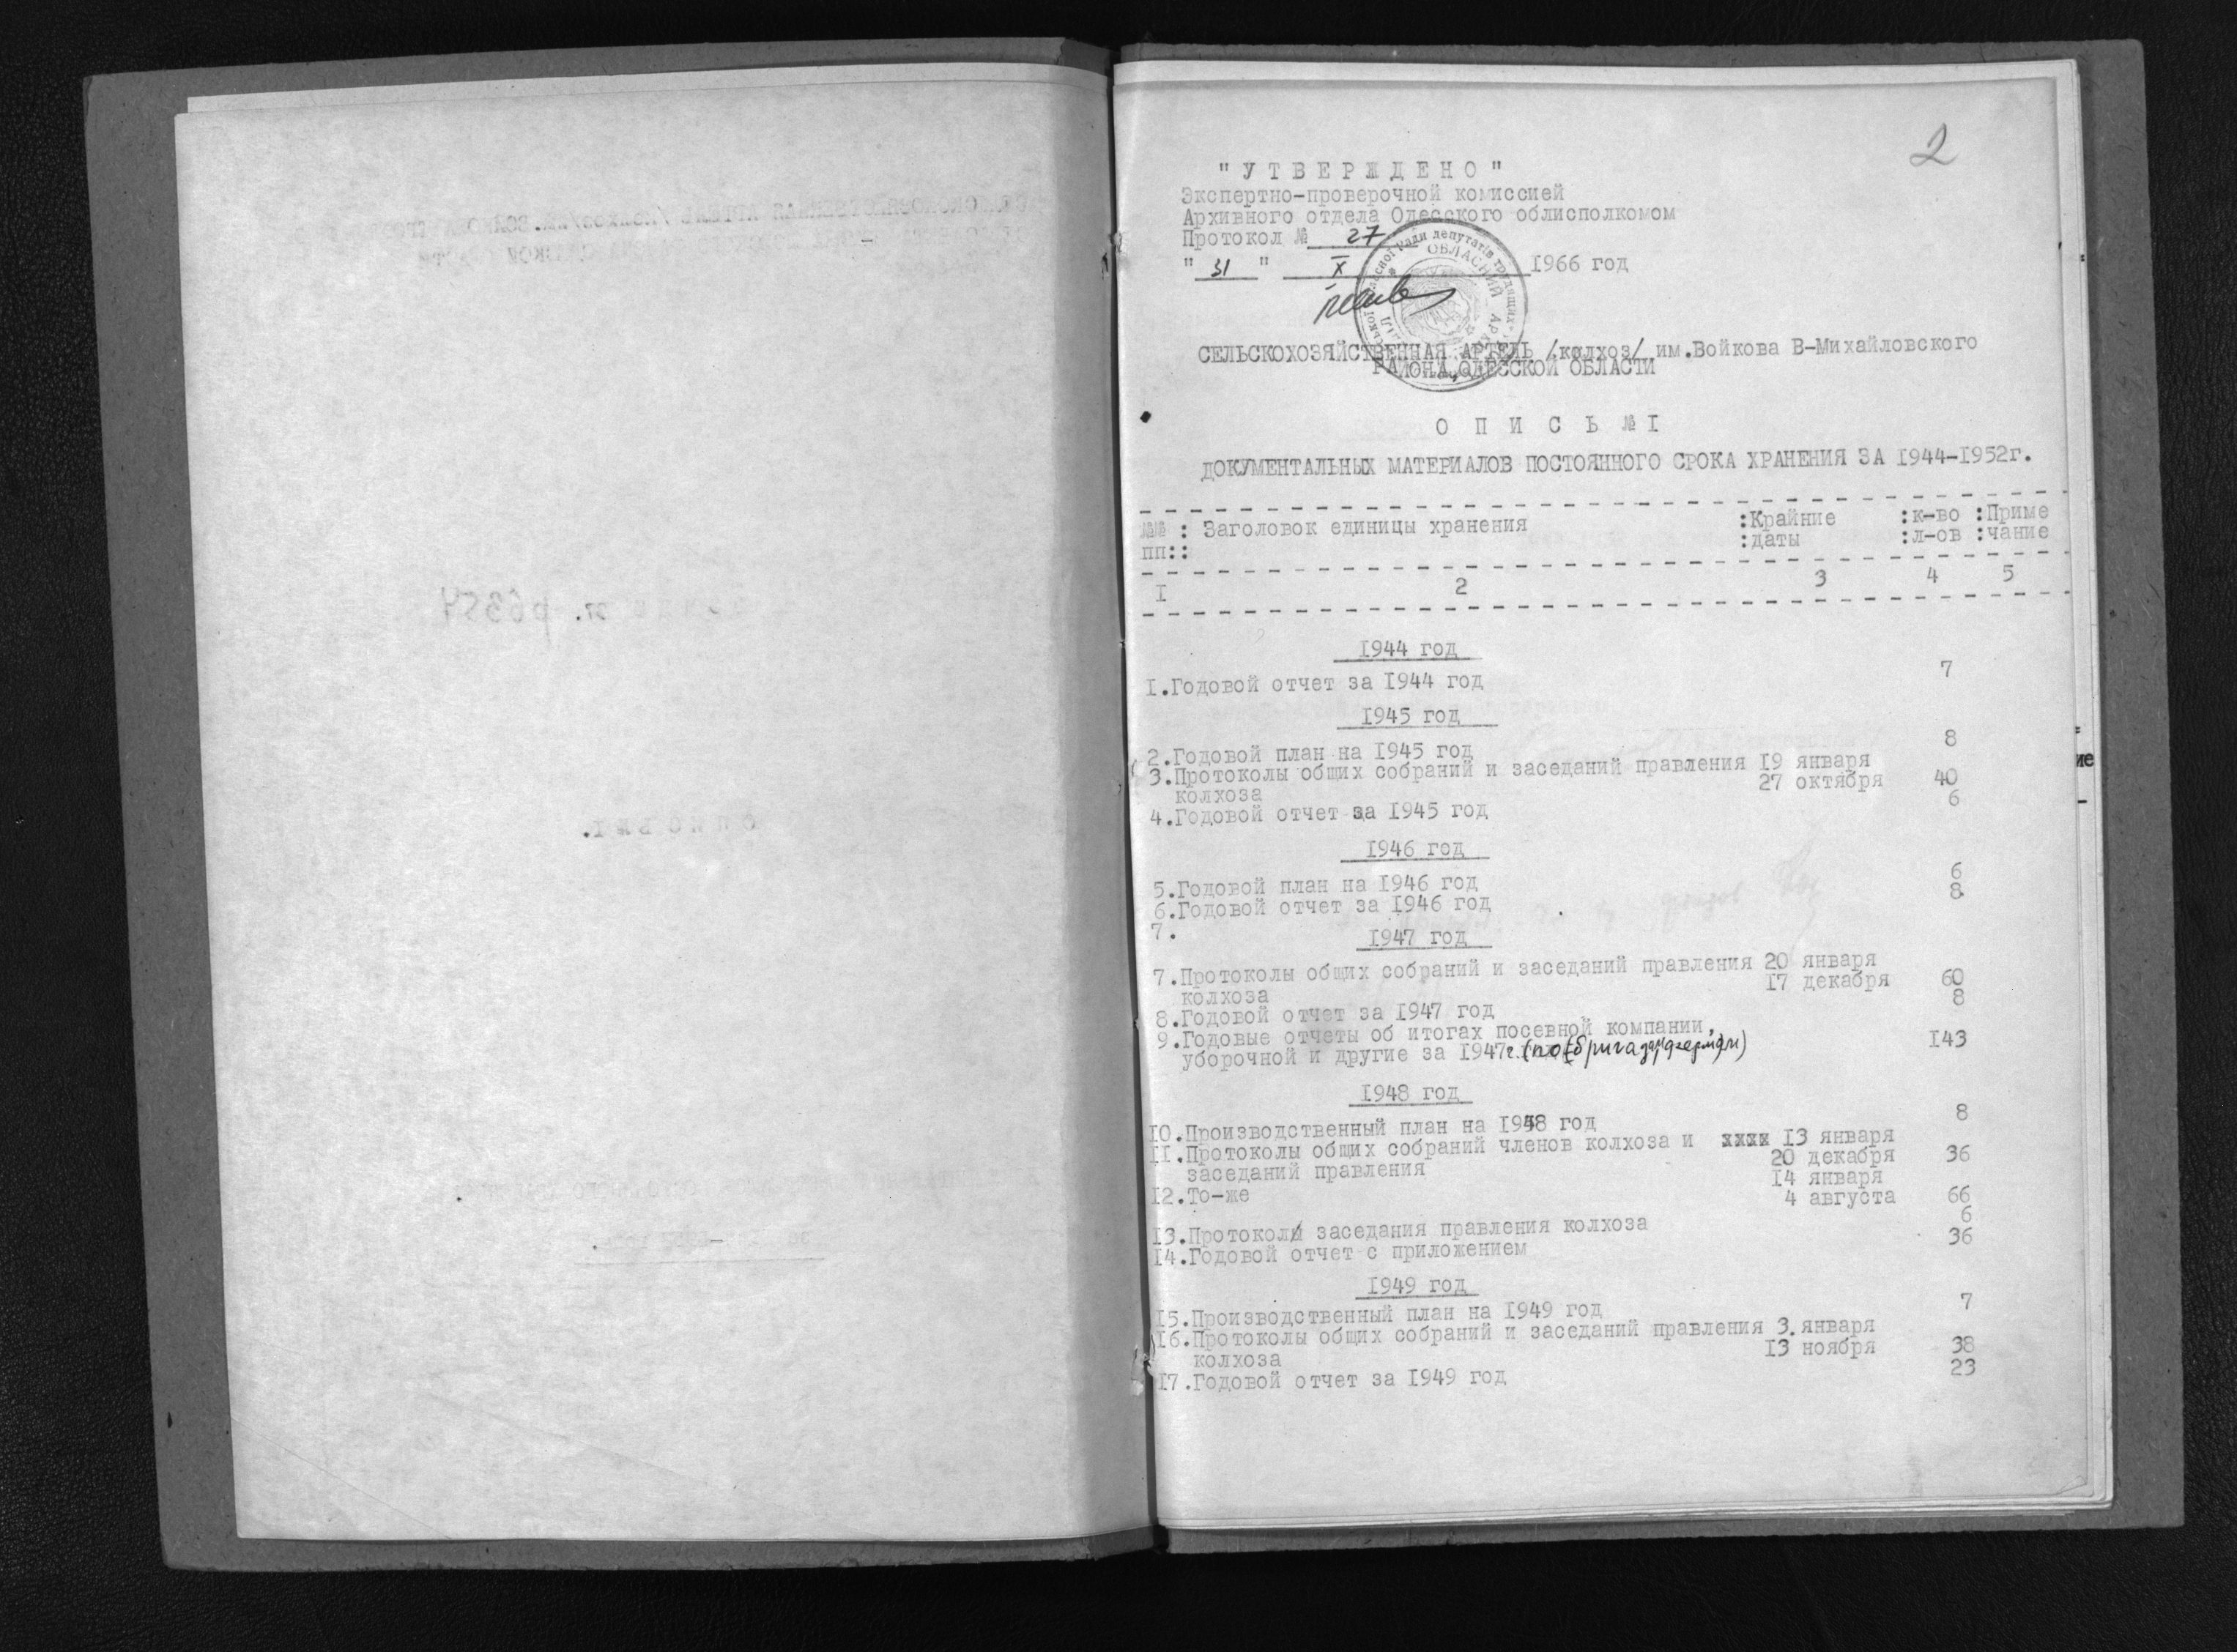 2
"УТВЕРЖДЕНО"
Экспертно-проверочной комиссией
Архивного отдела Одесского облисполкомом
Протокол № 27
"31" X 1966 год
СЕЛЬСКОХОЗЯЙСТВЕННАЯ АРТЕЛЬ /колхоз/ им.Войкова В-Михайловского
РАЙОНА, ОДЕССКОЙ ОБЛАСТИ
ОПИСЬ №I
ДОКУМЕНТАЛЬНЫХ МАТЕРИАЛОВ ПОСТОЯННОГО СРОКА ХРАНЕНИЯ ЗА I944-I952г.
№№ : Заголовок единицы хранения :Крайние :к-во :Приме
пп:: :даты :л-ов :чание
I 2 3 4 5
I944 год
I.Годовой отчет за I944 год 7
I945 год
2.Годовой план на I945 год 8
3.Протоколы общих собраний и заседаний правления I9 января
колхоза 27 октября 40
4.Годовой отчет за I945 год 6
I946 год
5.Годовой план на I946 год 6
6.Годовой отчет за I946 год 8
7.
I947 год
7.Протоколы общих собраний и заседаний правления 20 января
колхоза I7 декабря 60
8.Годовой отчет за I947 год 8
9.Годовые отчеты об итогах посевной компании,
уборочной и другие за I947г. (по бригадам, фермам) I43
I948 год
I0.Производственный план на I948 год 8
II.Протоколы общих собраний членов колхоза и хххх I3 января
заседаний правления 20 декабря 36
I2.То-же I4 января
4 августа 66
I3.Протоколы заседания правления колхоза 6
I4.Годовой отчет с приложением 36
I949 год
I5.Производственный план на I949 год 7
I6.Протоколы общих собраний и заседаний правления 3.января
колхоза I3 ноября 38
I7.Годовой отчет за I949 год 23